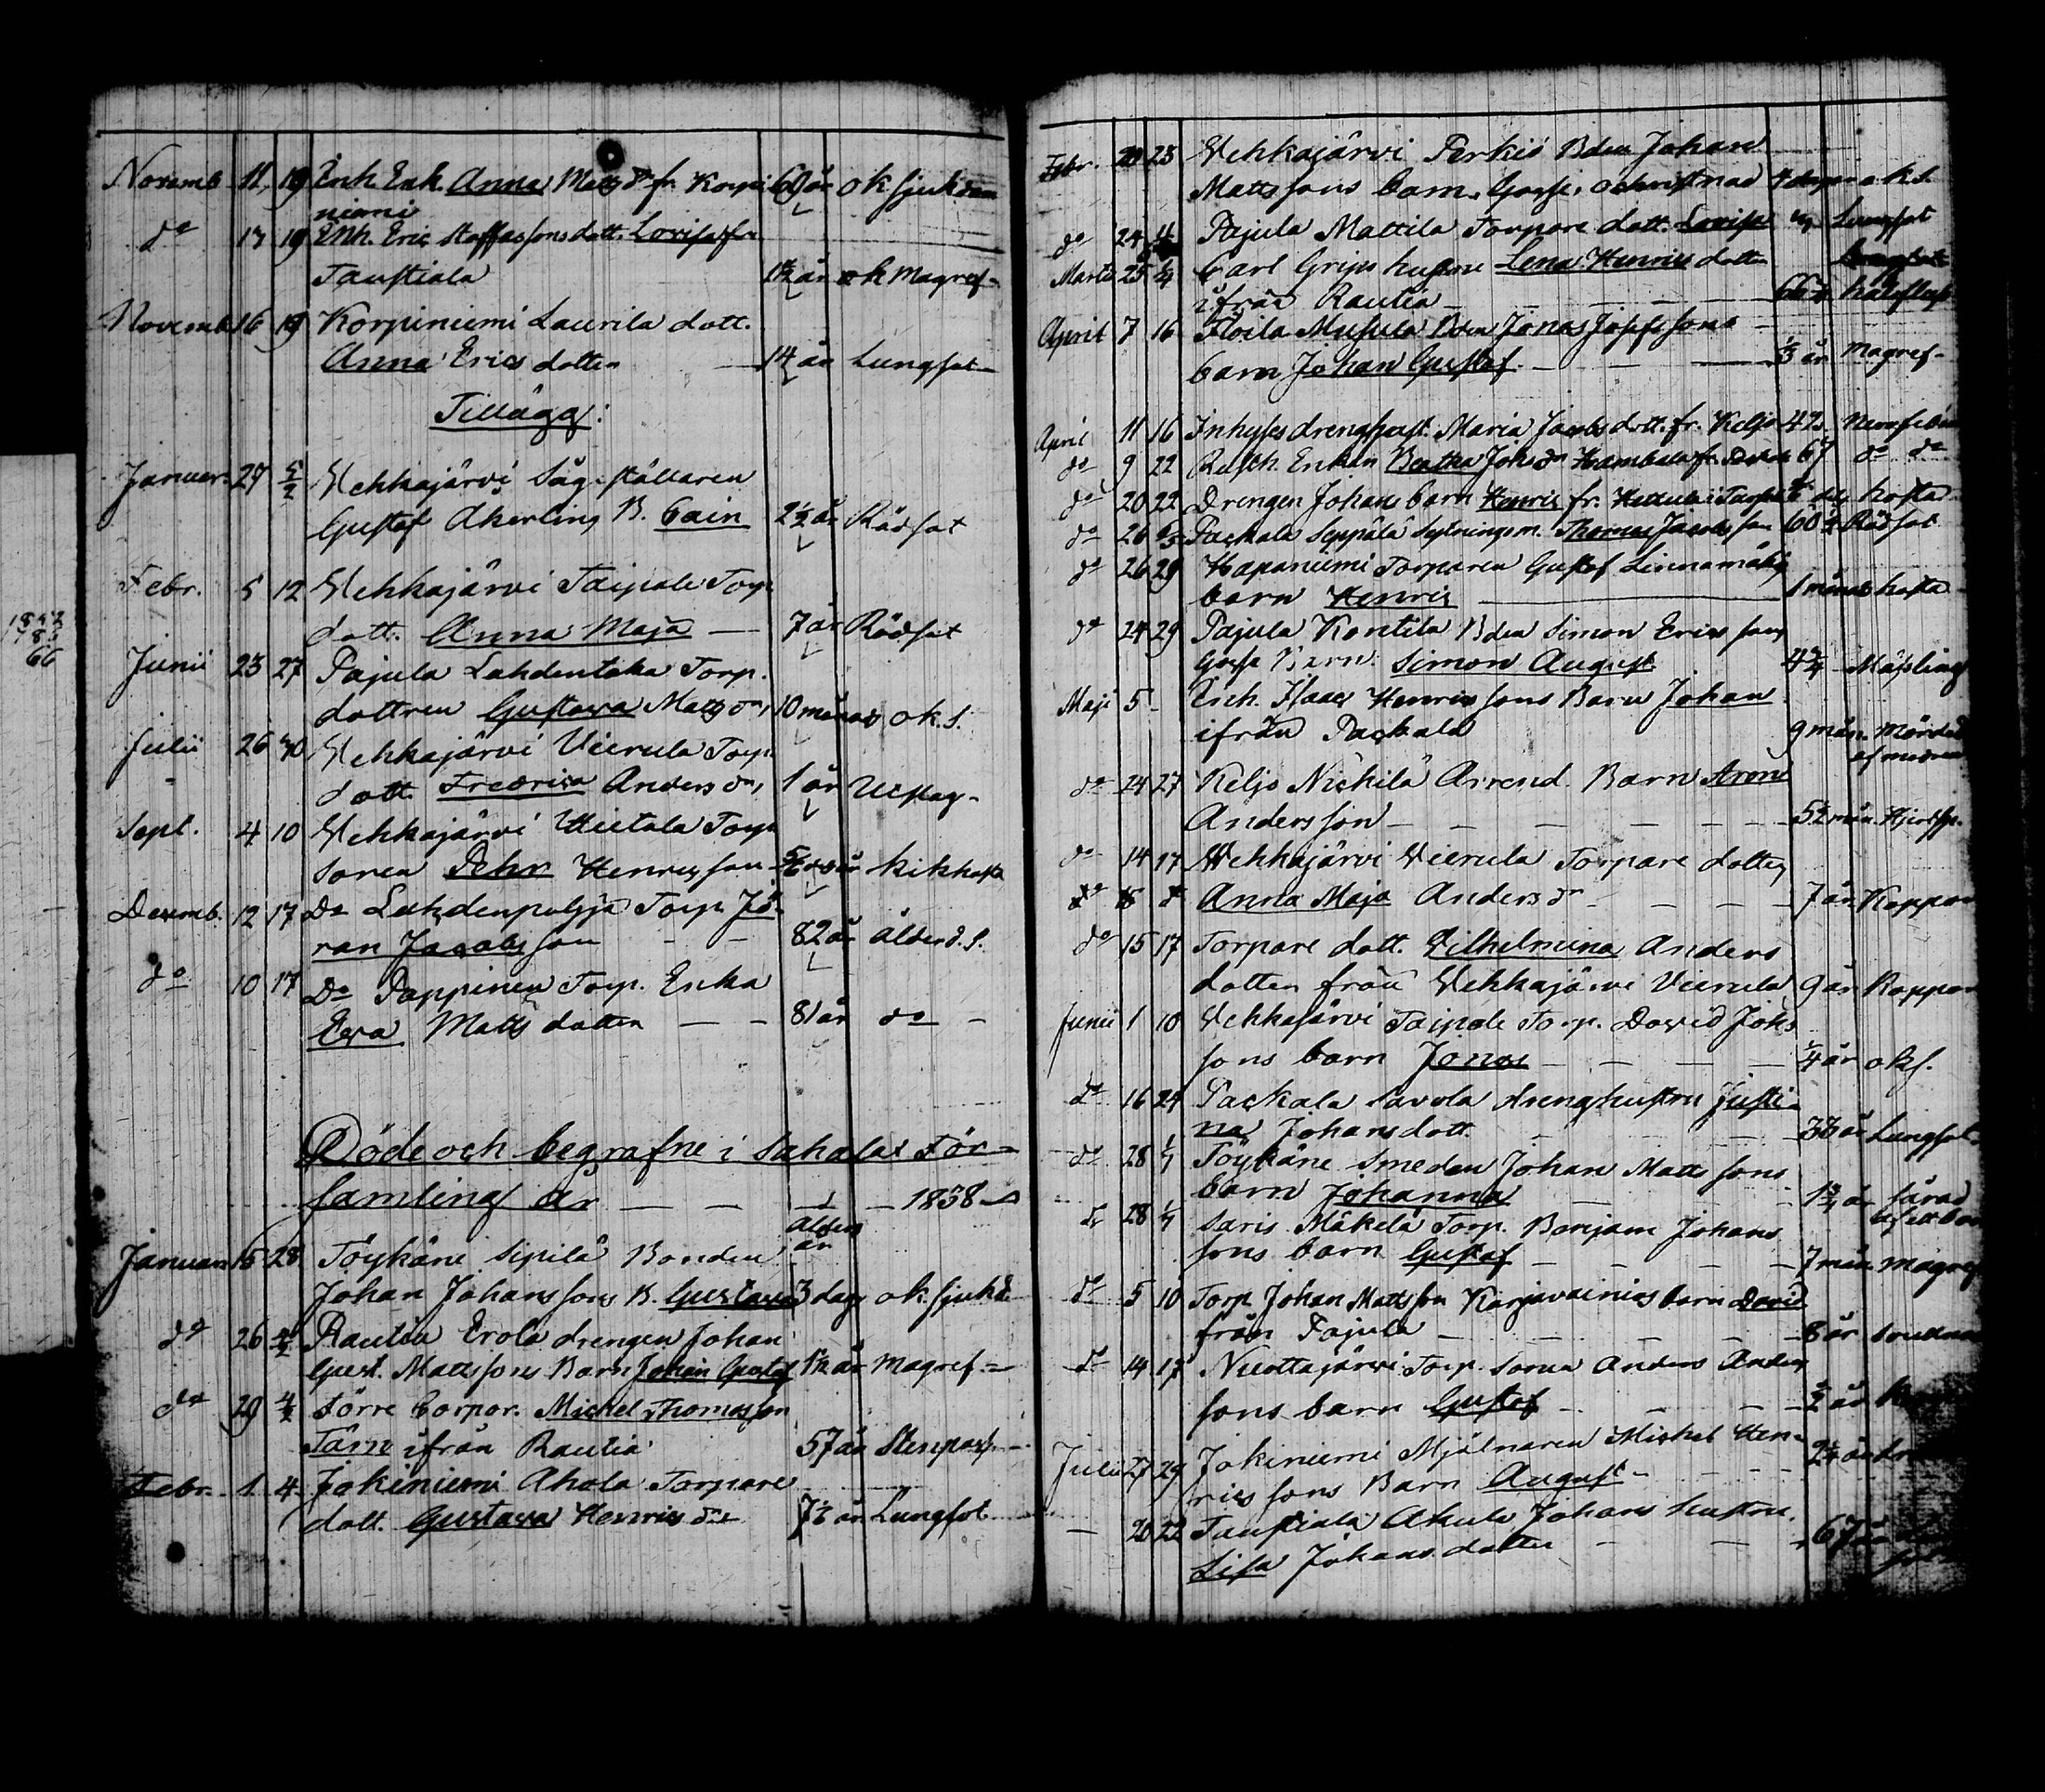 Novemb. 11 19 Enh. Enk. Anna Matsdr fr. Korpi 69 år ok sjukdom
niemi
do 17 19 Enh. Eric Staffassons dott. Lovisa fr
Taustiala 1½ år ok Magref-
Novemb. 16 19 Korpiniemi Laurila dott.
Anna Erics dotter 14 år Lungsot-
Tillägg:
Januar. 27 5/2 Wehkajärvi Såg-ställaren
Gustaf Åkerling B. Cain 2½ år Rödsot
Febr. 5 12 Wehkajärvi Taipale Torp.
dott. Anna Maja — 7 år Rödsot
1852
1785
66
Junii 23 27 Pajula Lahdentaka Torp.
dottren Gustava Mattsdr, 10 månad ok.s.
Julii 26 30 Wehkajärvi Vierula Torp.
dott. Fredrica Andersdr, 1 år Utslag-
Sept. 4 10 Wehkajärvi Hietala Torp.
sonen Pehr Henricsson kikhosta
Decemb. 12 17 Do Lahdenpohja Torp. Jö-
ran Jacobsson - - 82 år ålderd.s.
do 10 17 Do Pappinen Torp. Enka
Eva Matts dotter — - 81 år do -
Döde och begrafne i Sahalax För-
samling år — — — 1858
Ålder
år
Januari 15 28 Töykäne Sipilä Bonden
Johan Johanssons B. Gustava 3 dagar ok. sjukd.
do 26 Rautia Erola drengen Johan
Gust. Mattssons Barn Johan Gustaf 1½ år Magref-
do 29 4/2 Förre Corpor. Michel Thomasson
Tarn ifrån Rautia 57 år Stenpass
Febr. 1 4 Jokiniemi Ahola Torpare
dott. Gustava Henricsdr 7½ år Lungsot
Febr. 20 23 Wehkajärvi Perkiö Bden Johan
Mattssons barn, Gosse, ochristnad 4 dagar o.k.s.
do 24 Pajula Mattila Torpare dott. Lovisa Lungsot
Martii 25 Carl Grips hustru Lena Henrics dotter
ifrån Rautia — — — — 66 hålsfluss
April 7 16 Floila Musula Bden Jonas Josefssons
barn Johan Gustaf — — ⅓ år Magref-
April 11 16 Inhyses drengshust. Maria Jacobsdott. fr. Keljo 42 Nervfeber
do 9 22 Rusth. Enkan Beatha Johsdr 67 do do
do 20 22 Drengen Johans barn Henric fr. hosta
do 26 Packala Seppälä Sytningsm. Thomas Jacobsson 60 Rödsot
do 26 29 Hapaniemi Torparen Gustaf Linnamäkis
barn Henric — 1 månad hosta
do 24 29 Pajula Kontila Bden Simon Erics sons
Gosse Barn. Simon August Mässling
Maji 5 - Isaac Henrics sons Barn Johan
ifrån Packala 9 mån. Mördad
af modren
do 24 27 Keljo Nickilä Arrend. Barn Aron
Andersson — — — — — 5½ mån.
do 14 17 Wehkajärvi Vierula Torpare dotter
Anna Maja Andersdr — — — 7 år Koppor
do 15 17 Torpare dott. Vilhelmina Anders
dotter från Wehkajärvi Vierula 9 år Koppor
Junii 1 10 Wehkajärvi Taipale Torp. David Johs
sons barn Jonas — — — ¼ år oks.
do 16 24 Packala Savola drenghustru Justi-
na Johansdott. — — 33 år Lungsot
do 28 1/7 Töykäne Smeden Johan Matts sons
barn Johanna — — 1¾ år sårad
af ett barn
do 28 1/7 Saris Mäkelä Torp. Benjam Johans
sons barn Gustaf — — — 7 mån. Magref
do 5 10 Torp. Johan Mattsson Karjavainios barn David
från Pajula — — — — 8 år
do 14 17 Nuottajärvi Torp. sonen Anders Anders
sons barn Gustaf — — — ½ år
Julii 27 29 Jokiniemi Mjölnaren Michel Hen-
rics sons Barn August — — — 2¼ år
— 20 22 Taustiala Akula Johans hustru
Lisa Johans dotter — — 67 år